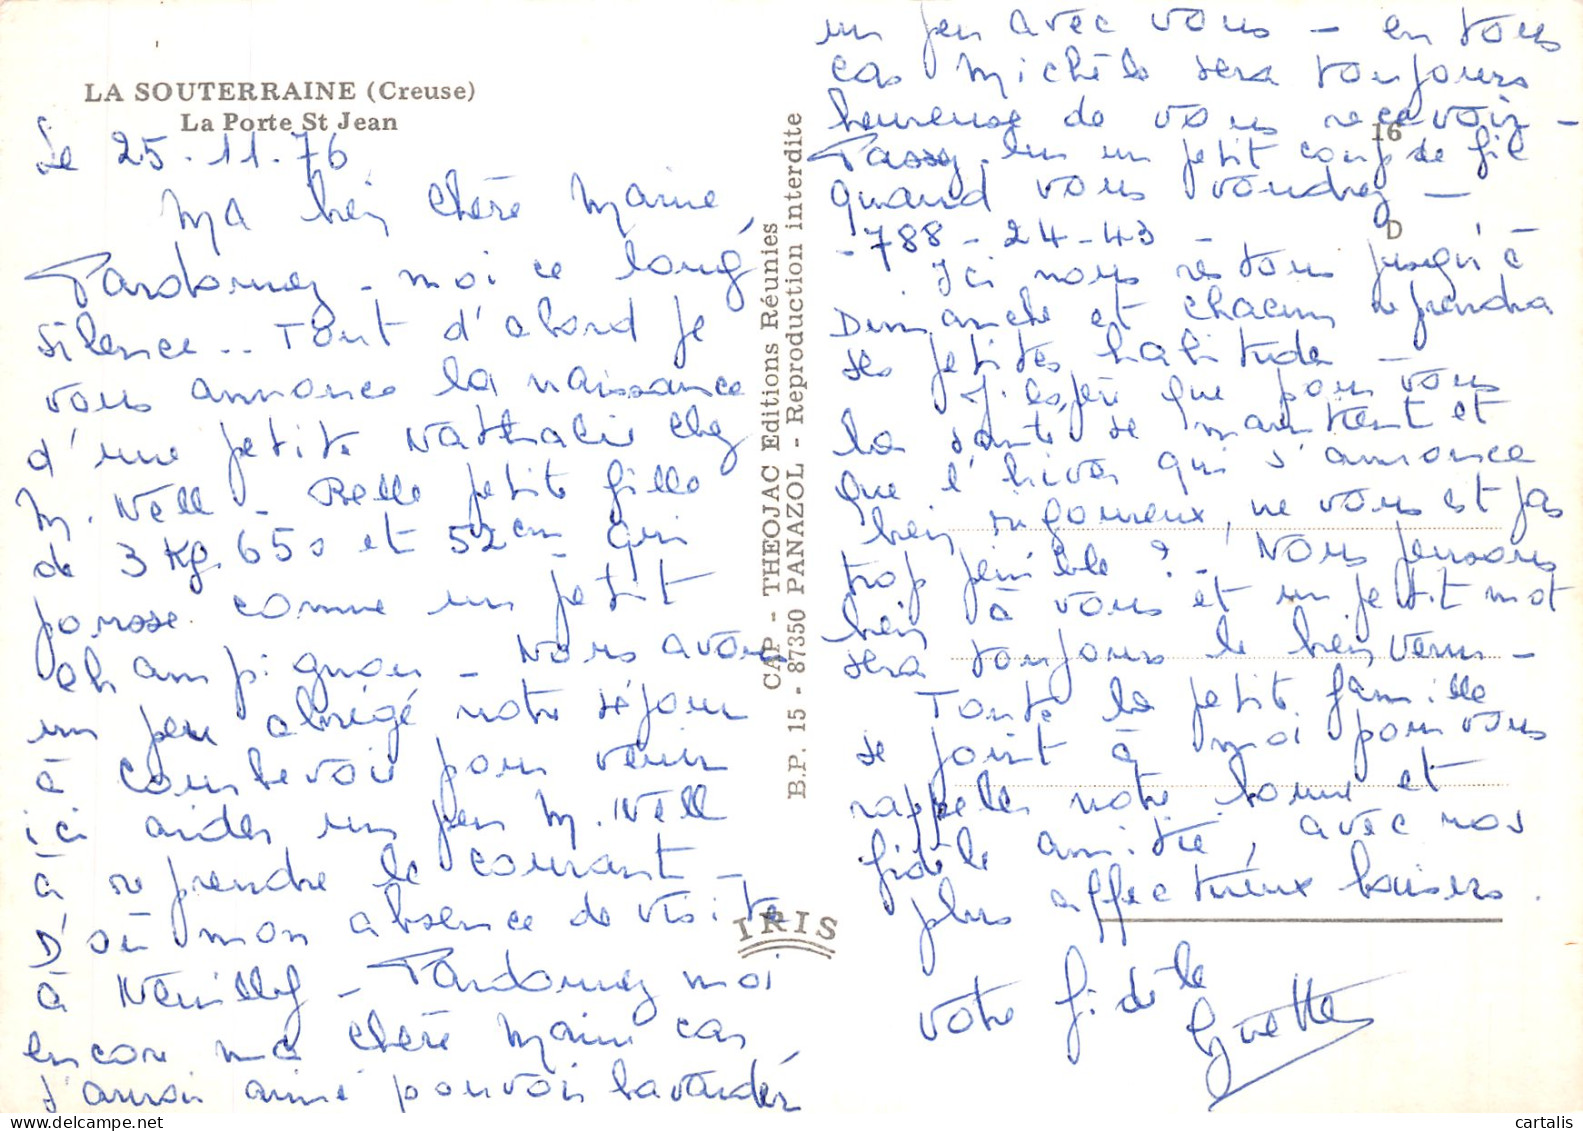 LA SOUTERRAINE (Creuse)
La Porte St Jean
Le 25.11.76
Ma bien chère Marraine,
Pardonnez-moi ce long
silence.. Tout d'abord je
vous annonce la naissance
d'une petite Nathalie chez
M. Nell - Belle petite fille
de 3 Kg. 650 et 52 cm - qui
pousse comme un petit
champignon - Nous avons
un peu abrégé notre séjour
à Courbevoie pour venir
ici aider un peu M. Nell
à reprendre le courant -
D'où mon absence de visite
à Neuilly - Pardonnez moi
encore ma chère car
j'aurai aimé pouvoir bavarder
CAP - THEOJAC Editions Réunies
B.P. 15 - 87350 PANAZOL - Reproduction interdite
IRIS
16
D
un peu avec vous - en tous
cas Michèle sera toujours
heureuse de vous recevoir -
Passez-lui un petit coup de fil
quand vous voudrez -
- 788 - 24 - 43 -
Ici nous restons jusqu'à
Dimanche et chacun reprendra
ses petites habitudes -
J'espère que pour vous
la santé se maintient et
que l'hiver qui s'annonce
bien rigoureux, ne vous est pas
trop pénible ? - Nous pensons
bien à vous et un petit mot
sera toujours le bien venu -
Toute la petite famille
se joint à moi pour vous
rappeler notre bonne et
fidèle amitié, avec nos
plus affectueux baisers.
Votre fidèle
Ginette
cartalis